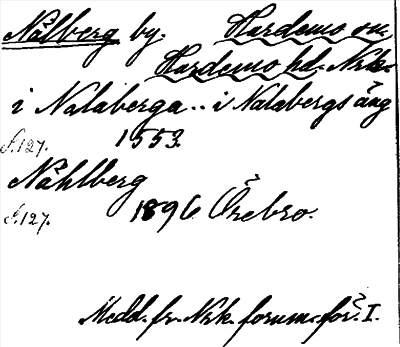 Nålberg by. Hardemo sn.
Hardemo hd. Nrk.
i Nalaberga .. i Nalabergs äng
s. 127. 1553.
Nåhlberg
s. 127. 1896 Örebro.
Medd. fr. Nrk. fornm.-för. I.